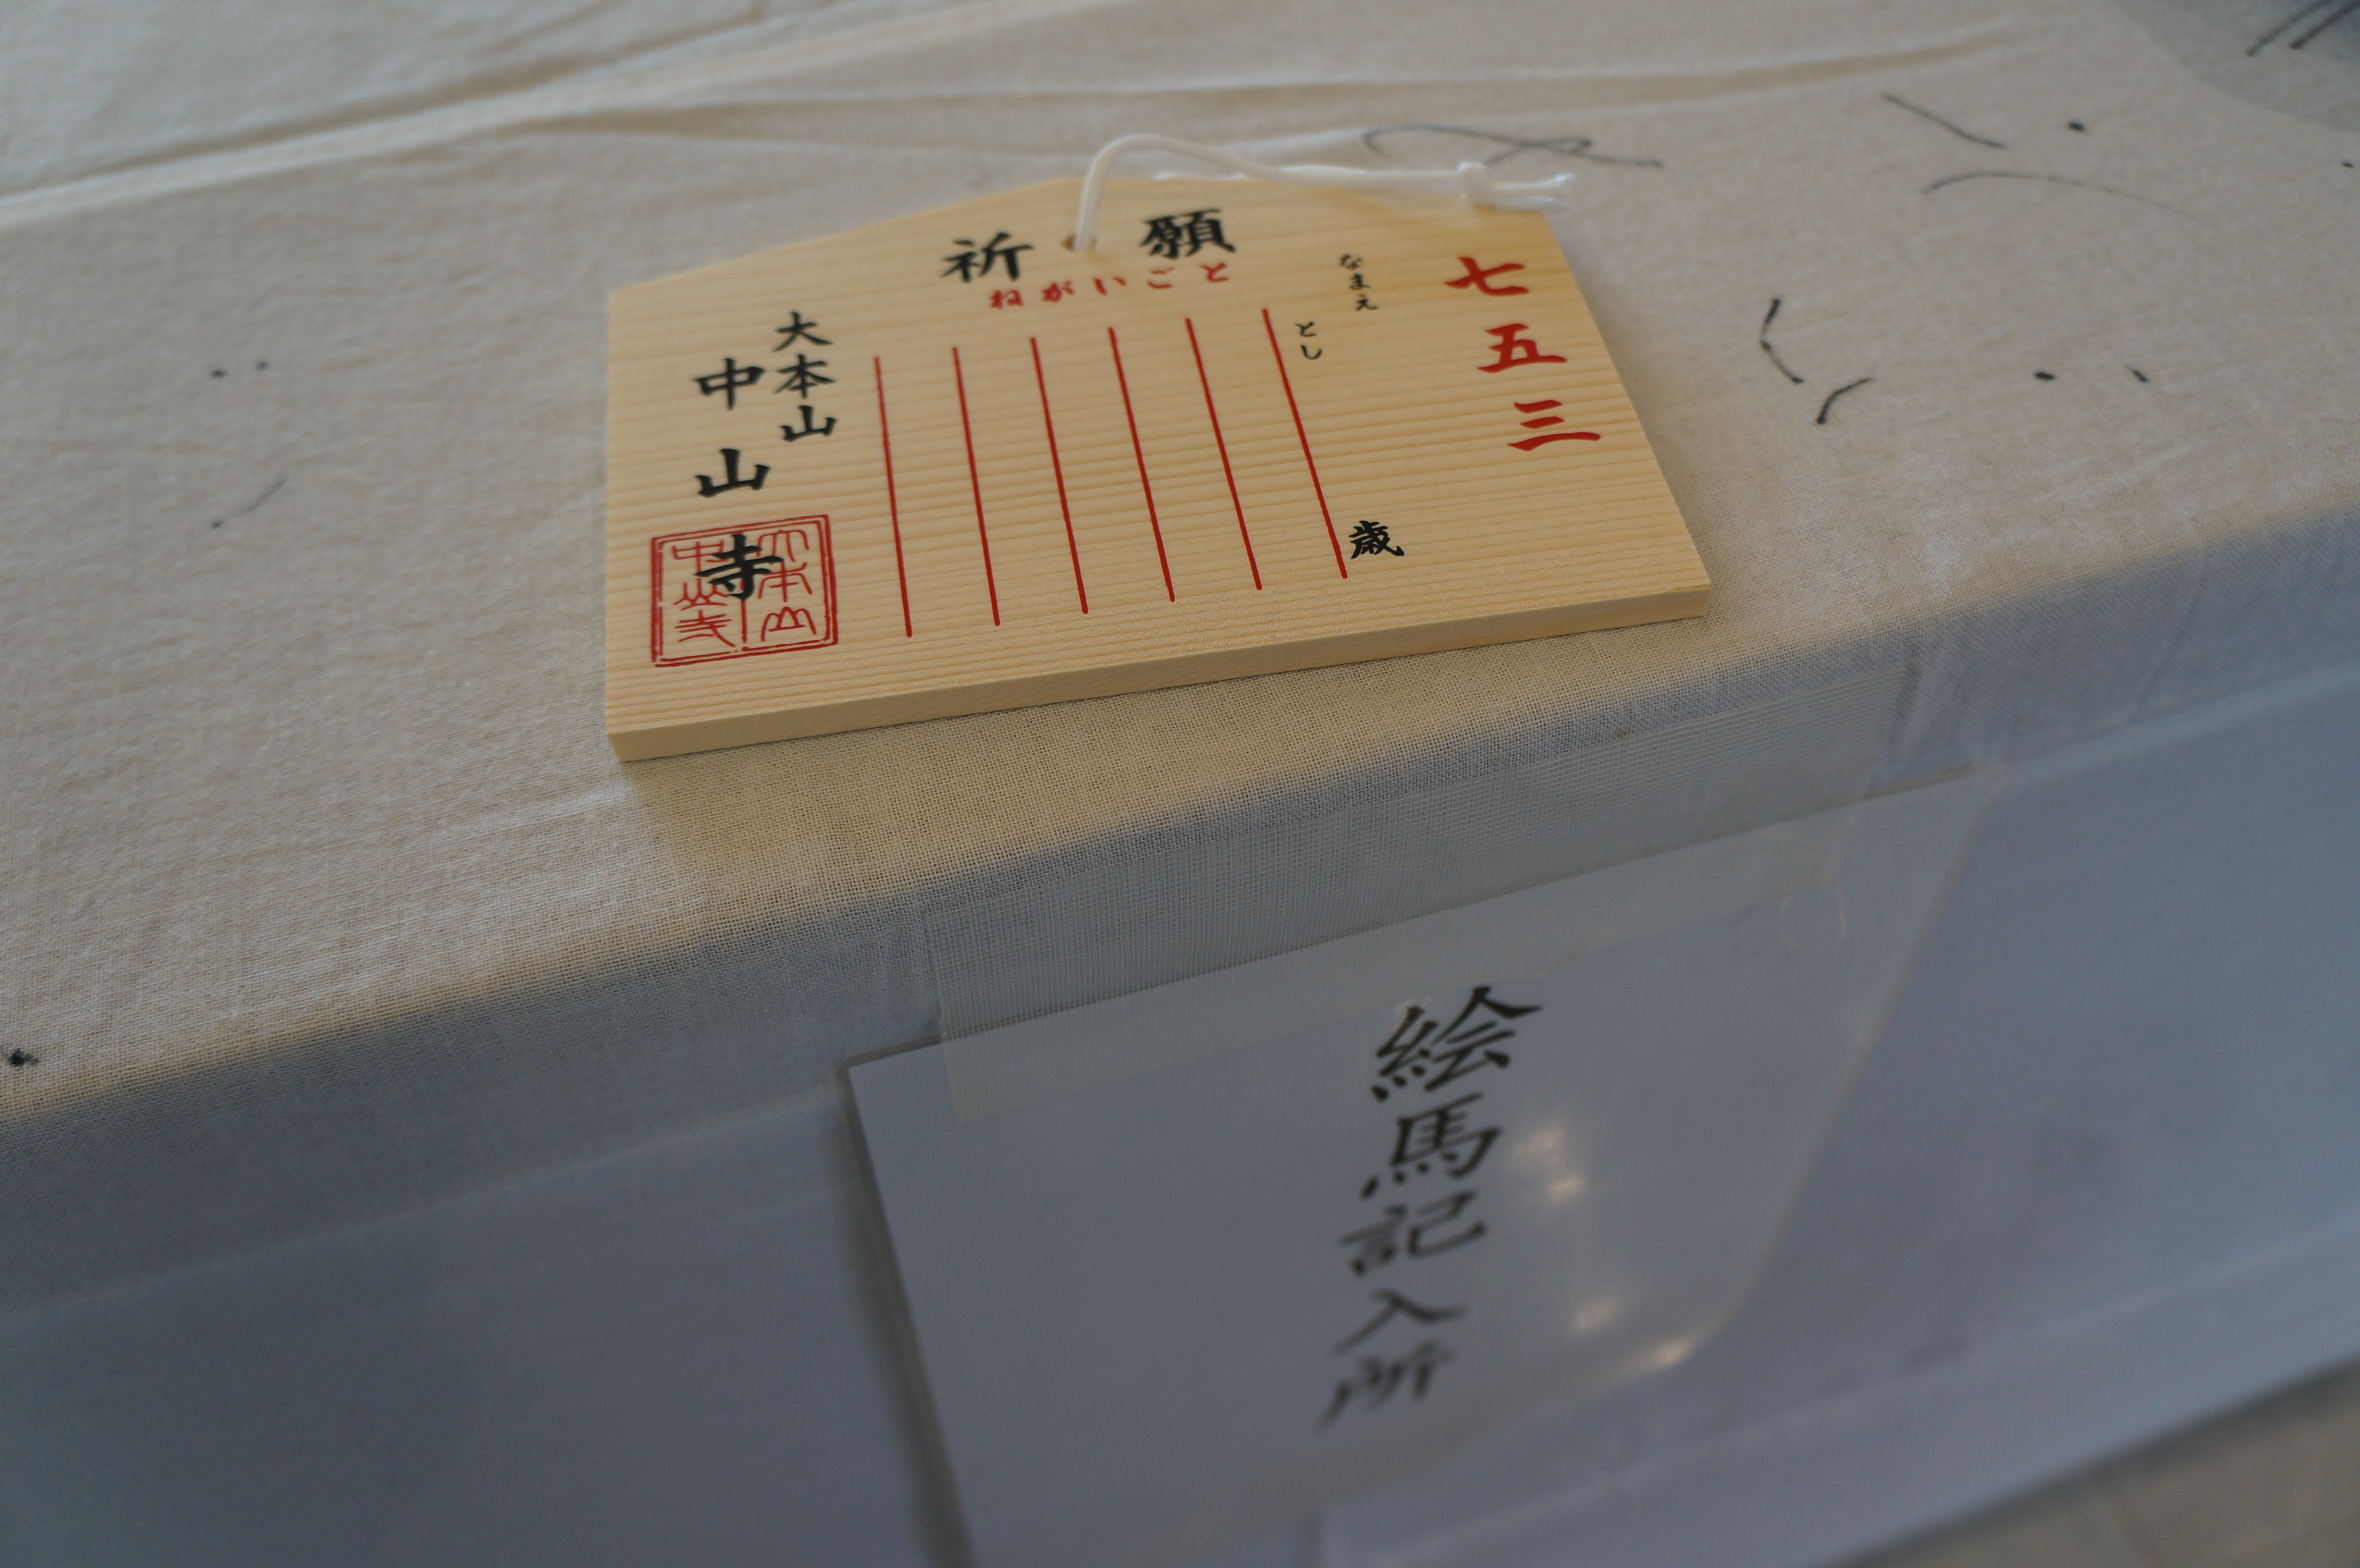 七五三
なまえ
とし
歳
祈願
ねがいごと
大本山
中山寺
大本山
中山寺
絵馬記入所